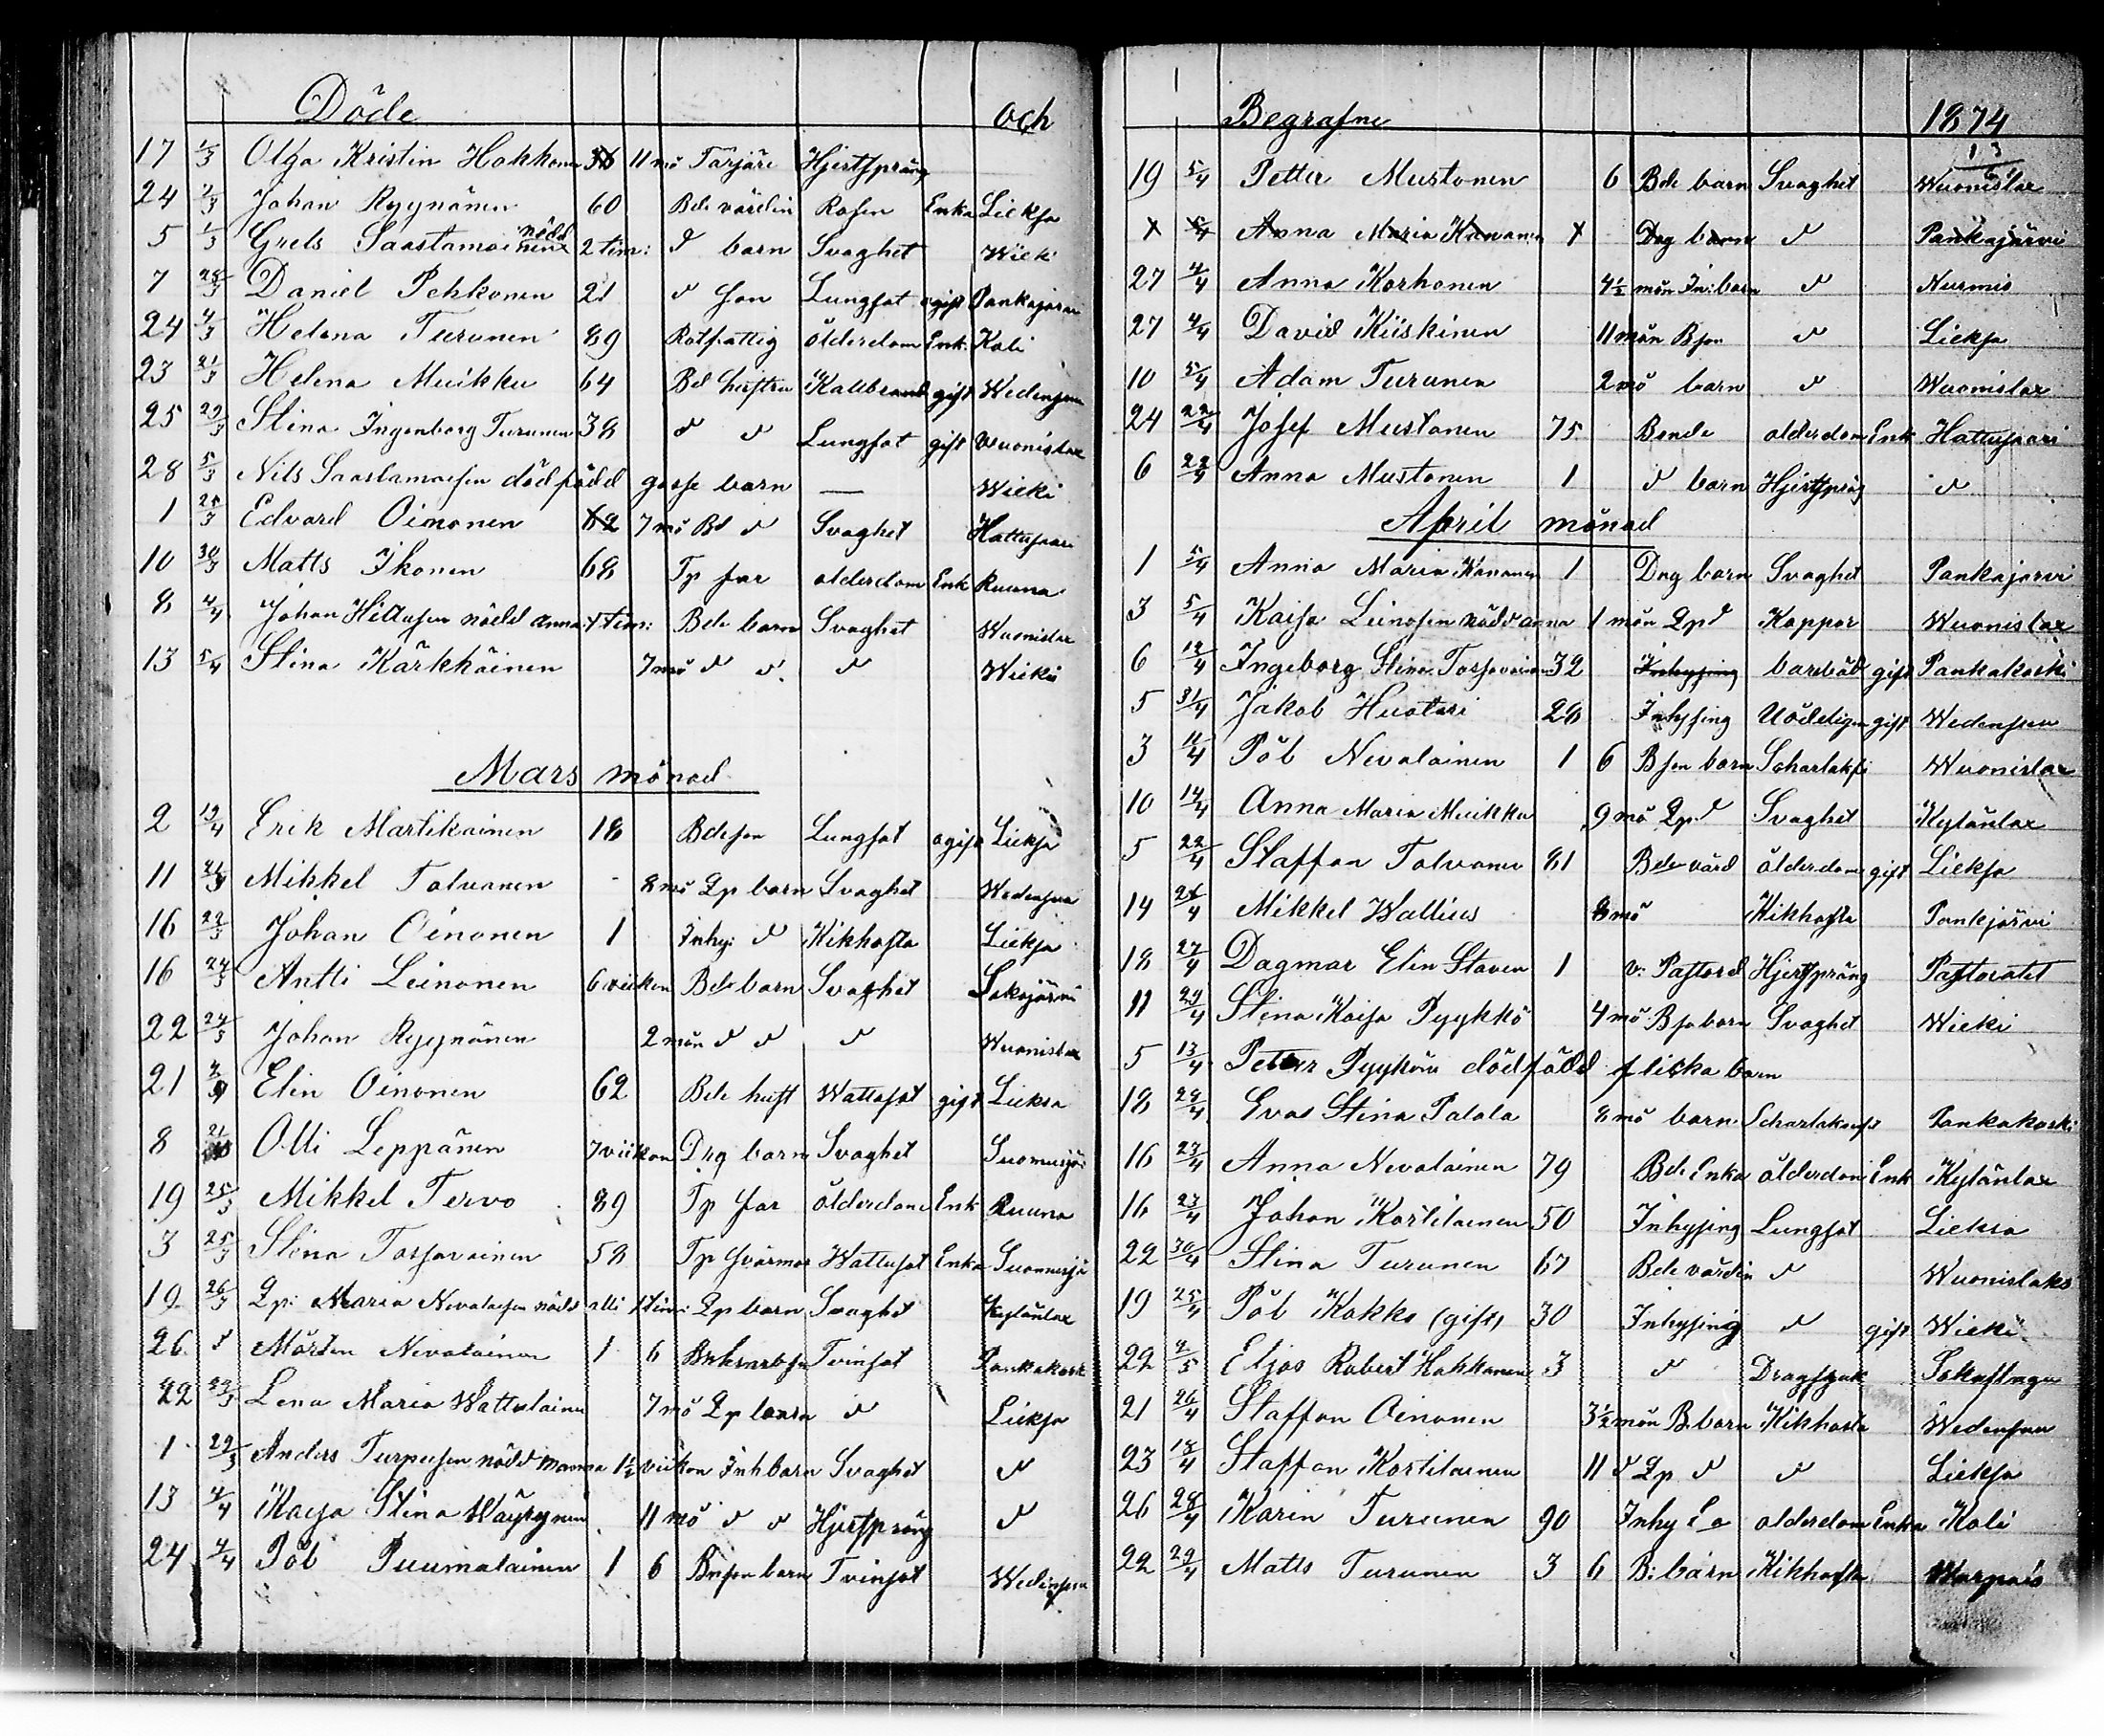 Döde och
17 1/3 Olga Kristin Hokkonen 11 mö Färjäre Hjertspräng
24 1/3 Johan Ryynänen 60 Bde värdin Rosen Enka Lieksa
5 1/3 Grels Saastamoinen nödd 2 tim: d barn Svaghet Wieki
7 28/3 Daniel Pehkonen 21 d son Lungsot ogift Pankajärvi
24 4/3 Helena Turunen 89 Rotfattig ölderdom Enk. Koli
23 21/3 Helena Muikku 64 Bd hustru Kallbrand gift Wedensuu
25 29/3 Stina Ingenborg Turunen 38 d d Lungsot gift Wuonislax
28 5/3 Nils Saastamoisen dödfödd gosse barn — Wieki
1 25/3 Edvard Oinonen 7 mö Bd d Svaghet Hattusaari
10 30/3 Matts Ikonen 68 Tp far olderdom Enk Ruuna
8 4/4 Johan Hiltusen nödd anna 1 tim: Bde barn Svaghet Wuonislax
13 5/4 Stina Kärkkäinen 7 mö d d. d Wieki
Mars mönad
2 19/4 Erik Martikainen 18 Bdeson Lungsot ogift Lieksa
11 Mikkel Tolvanen 8 mö Lp barn Svaghet Wedensuu
16 22/3 Johan Oinonen 1 Inhy: d Kikhosta Lieksa
16 24/3 Antti Leinonen 6 viikon Bde barn Svaghet Sokojärvi
22 24/3 Johan Ryynänen 2 mön d d d Wuonislax
21 Elin Oinonen 62 Bde hust Wattusot gift Lieksa
8 Olli Leppänen 7 viikon Drg barn Svaghet Suomusjär
19 25/3 Mikkel Tervo 89 Tp far ölderdom Enk Ruuna
3 25/3 Stina Tossavainen 58 Tp svärmor Wattusot Enka Suomusjä
19 26/3 Lp: Maria Nevalaisen nödd olli 1 tim: Lp barn Svaghet Kylänlax
26 d Mårten Nevalainen 1 6 Tvinsot Pankakosk
22 29/3 Lena Maria Wattulainen 7 mö Lp barn d Lieksa
1 29/3 Anders Turpeisen nödd manna 1 1/2 viikon Inh barn Svaghet d
13 4/4 Kaysa Stina Wäyrynen 11 mö d d Hjertspräng d
24 4/4 Påb Puumalainen 1 6 Bnson barn Tvinsot Wedensuu
Begrafne 1874
13
19 5/4 Petter Mustonen 6 Bde barn Svaghet Wuonislax
x Anna Maria Kananen 1 Drg barn d Pankajärvi
27 4/4 Anna Korhonen 4 1/2 mön In: barn d Nurmis
27 4/4 David Kiiskinen 11 mön Bson d Lieksa
10 5/4 Adam Turunen 2 mö barn d Wuonislax
24 22/4 Josef Mustonen 75 Bonde olderdom Enk Hattusaari
6 22/4 Anna Mustonen 1 d barn Hjertspräg d
April mönad
1 5/4 Anna Maria Kananen 1 Drg barn Svaghet Pankajärvi
3 5/4 Kaisa Leinosen nödd anna 1 mön Lp d Koppor Wuonislax
6 12/4 Ingeborg Stina Tossavainen 32 Inhysing barsbäd gift Pankakoski
5 31/4 Jakob Huotari 28 Inhysing Uödeligen gift Wedensuu
3 11/4 Påb Nevalainen 1 6 Bson barn Scharlakfe Wuonislax
10 14/4 Anna Maria Muikku 9 mö Lp. d Svaghet Kylänlax
5 22/4 Staffan Tolvanen 81 Bde värd ölderdom gift Lieksa
14 Mikkel Wallius 8 mö Kikhosta Pankjärvi
18 27/4 Dagmar Elin Staven 1 v: Pastord Hjertspräng Pastoratet
11 29/4 Stina Kaisa Pyykkö 4 mö Bso barn Svaghet Wieki
5 13/4 Petter Pyykön dödfödd flikka barn
18 28/4 Eva Stina Palola 8 mö barn Scharlakansfe Pankakoski
16 23/4 Anna Nevalainen 79 Bde Enka ölderdom Enk Kylänlax
16 27/4 Johan Kortilainen 50 Inhysing Lungsot Lieksa
22 30/4 Stina Turunen 67 Bde värdin d Wuonislaks
19 25/4 Påb Kokko (gift) 30 Inhysing d gift Wieki
22 2/5 Eljas Robert Hakkanen 3 d Dragsjuk
21 26/4 Staffan Oinonen 3 1/2 mön B: barn Kikhosta Wedensuu
23 18/4 Staffan Kortilainen 11 d Lp d d Lieksa
26 28/4 Karin Turunen 90 Inhy olderdom Enka Koli
22 29/4 Matts Turunen 3 6 B: barn Kikhosta Warpais